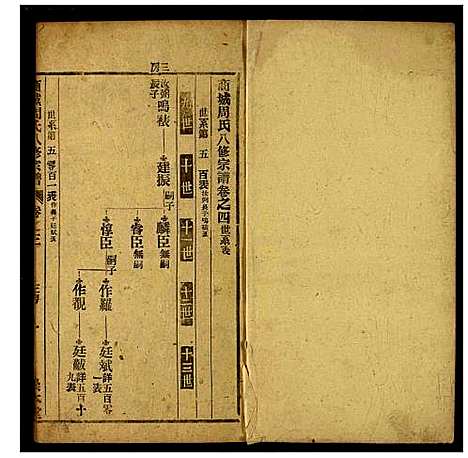 商城周氏八修宗譜卷之四世系表
世系第五百表
九世 十世 十一世 十二世 十三世
三房
鳴裱
建振 嗣子
麟臣 無嗣
睿臣 無嗣
惇臣 嗣子
作羅
廷斌 詳五百零一表
作覲
廷黻 詳五百十九表
世系第五零百一表
商城周氏八修宗譜